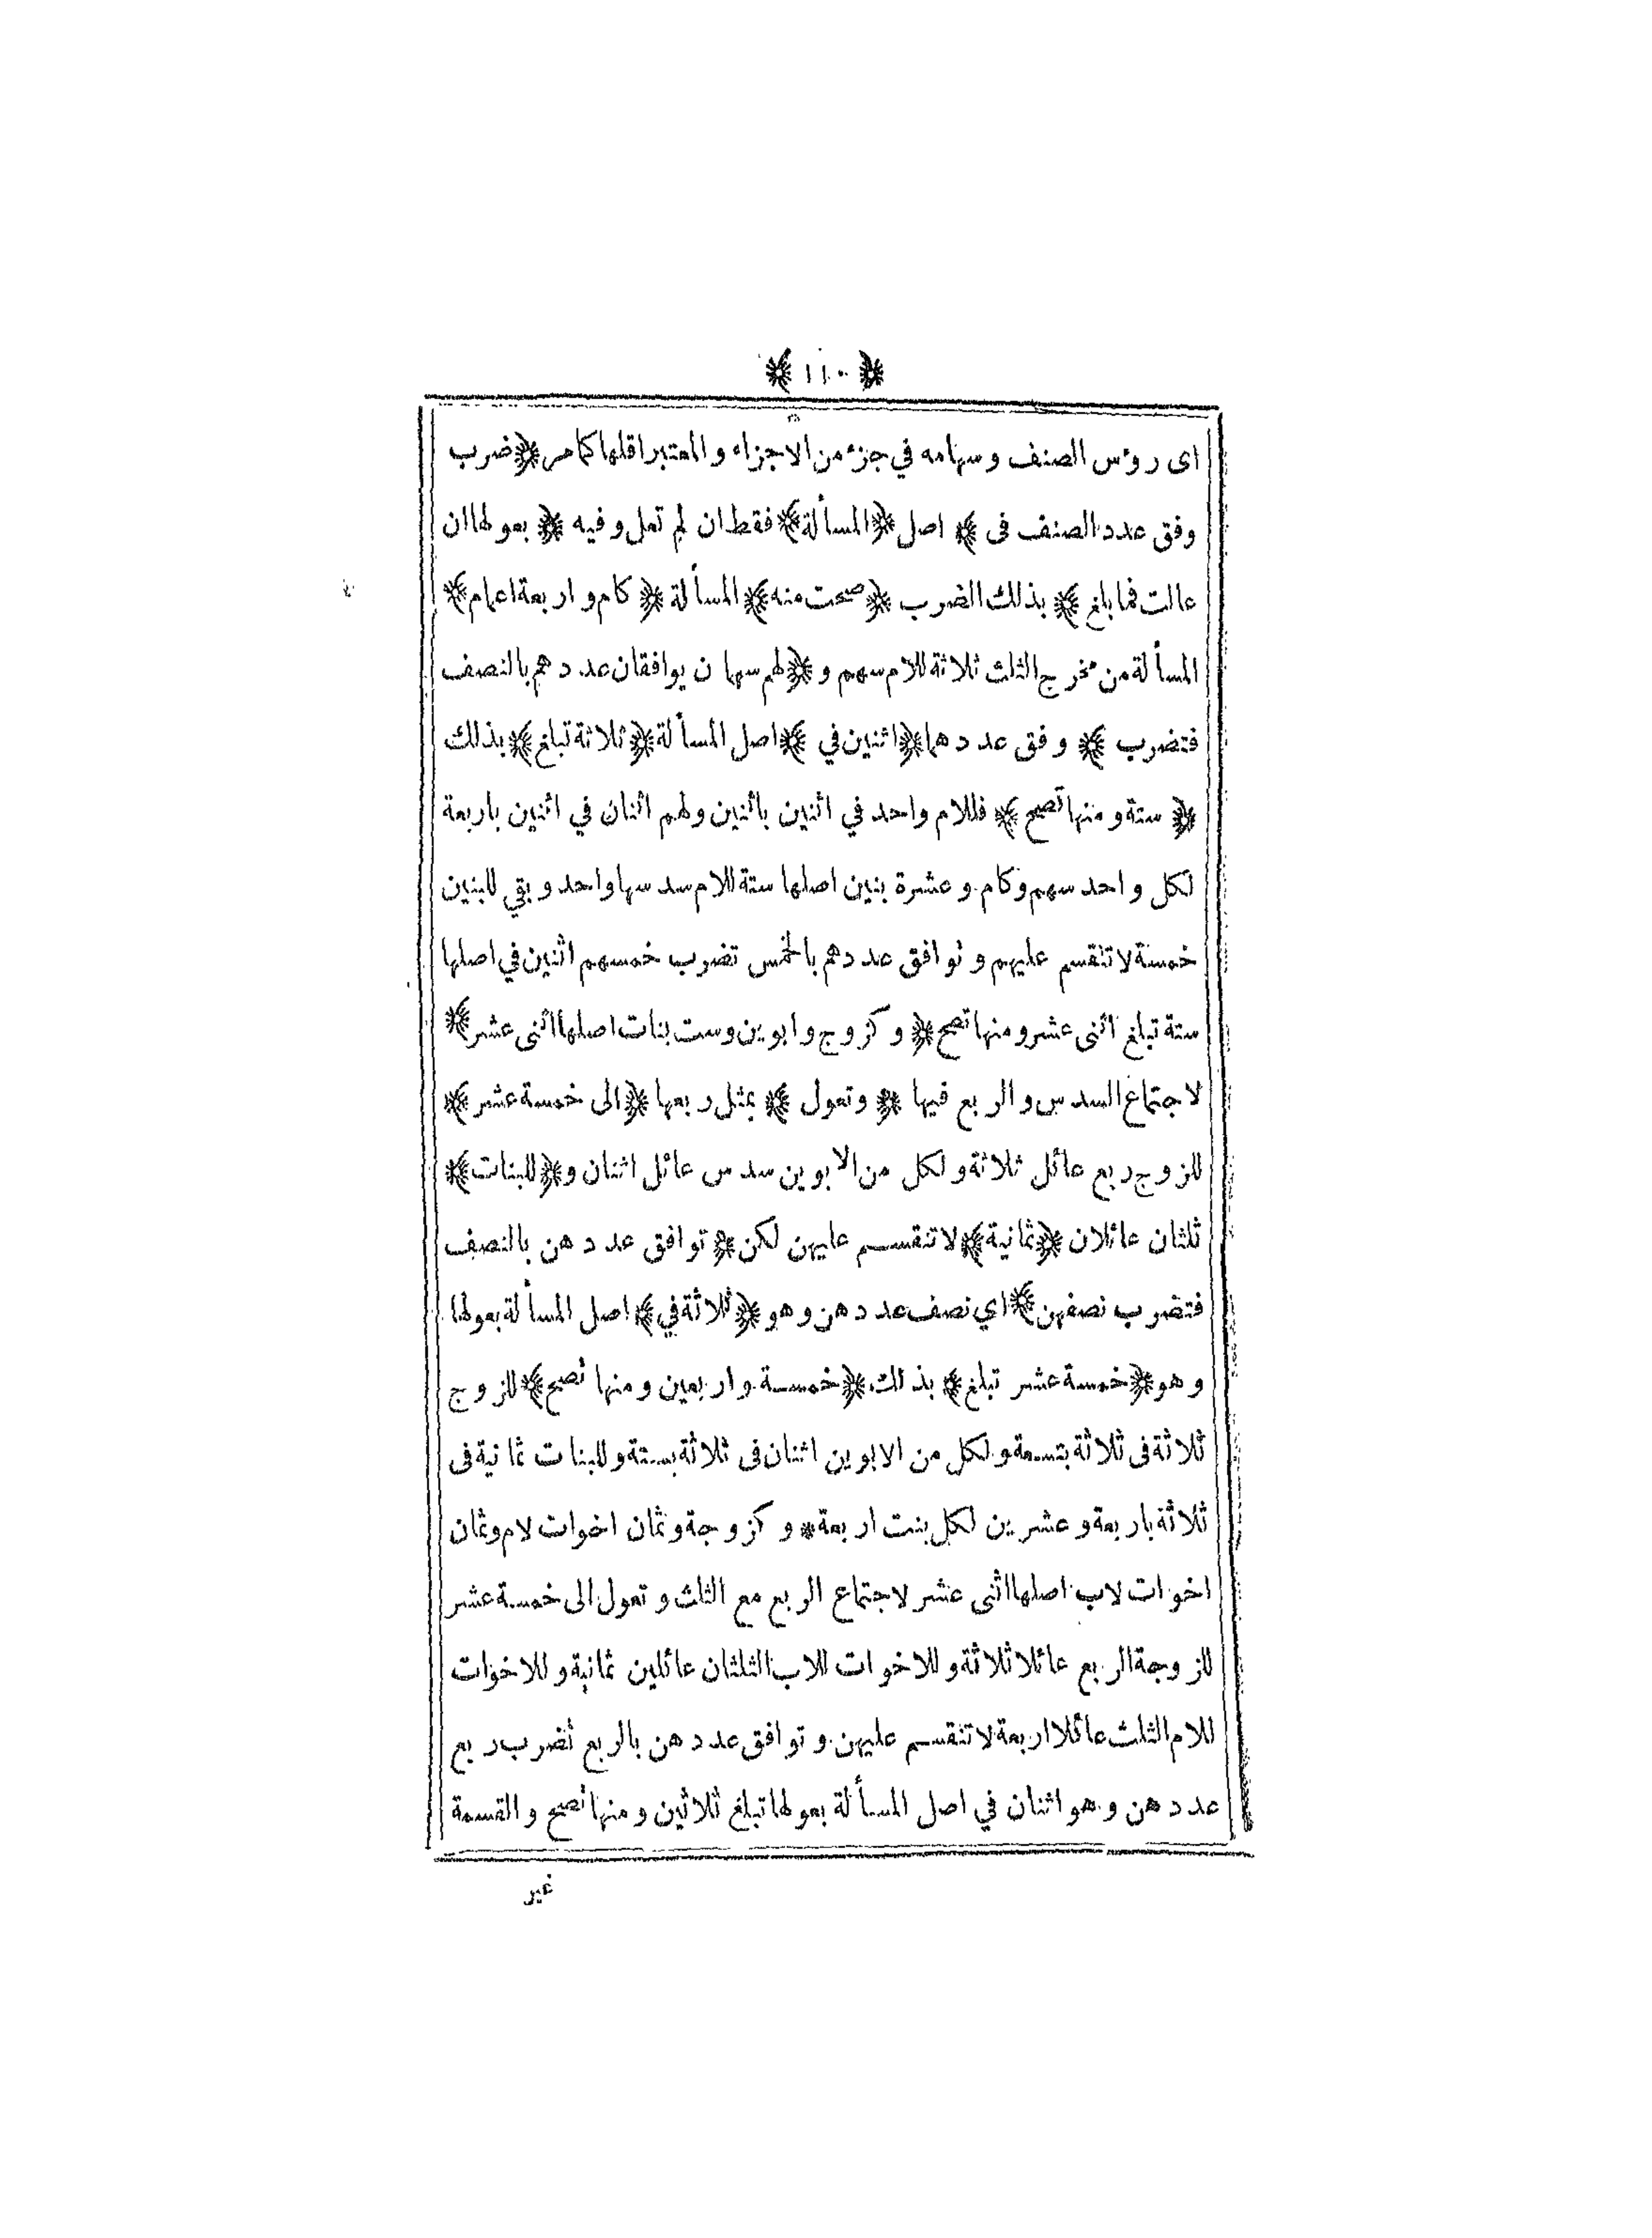 ﴿ ١١٠ ﴾
اى رؤس الصنف وسهامه في جزء من الاجزاء والمعتبر اقلها كما مر ﴿ ضرب
وفق عدد الصنف فى ﴾ اصل ﴿ المسألة ﴾ فقط ان لم تعل وفيه ﴿ بعولها ان
عالت فما بلغ ﴾ بذلك الضرب ﴿ صحت منه ﴾ المسألة ﴿ كام واربعة اعمام ﴾
المسألة من مخرج الثلث ثلاثة للام سهم و ﴿ لهم سهمان يوافقان عددهم بالنصف
فتضرب ﴾ وفق عددهما ﴿ اثنين في ﴾ اصل المسألة ﴿ ثلاثة تبلغ ﴾ بذلك
﴿ ستة ومنها تصح ﴾ فللام واحد في اثنين باثنين ولهم اثنان في اثنين باربعة
لكل واحد سهم وكام وعشرة بنين اصلها ستة للام سدسها واحد وبقي للبنين
خمسة لا تنقسم عليهم وتوافق عددهم بالخمس تضرب خمسهم اثنين في اصلها
ستة تبلغ اثنى عشر ومنها تصح ﴿ وكزوج وابوين وست بنات اصلها اثنى عشر ﴾
لاجتماع السدس والربع فيها ﴿ وتعول ﴾ بمثل ربعها ﴿ الى خمسة عشر ﴾
للزوج ربع عائل ثلاثة ولكل من الابوين سدس عائل اثنان و ﴿ للبنات ﴾
ثلثان عائلان ﴿ ثمانية ﴾ لا تنقسم عليهن لكن ﴿ توافق عددهن بالنصف
فتضرب نصفهن ﴾ اي نصف عددهن وهو ﴿ ثلاثة في ﴾ اصل المسألة بعولها
وهو ﴿ خمسة عشر تبلغ ﴾ بذلك ﴿ خمسة واربعين ومنها تصح ﴾ للزوج
ثلاثة فى ثلاثة بتسعة ولكل من الابوين اثنان فى ثلاثة بستة وللبنات ثمانية فى
ثلاثة باربعة وعشرين لكل بنت اربعة * وكزوجة وثمان اخوات لام وثمان
اخوات لاب اصلها اثنى عشر لاجتماع الربع مع الثلث وتعول الى خمسة عشر
للزوجة الربع عائلا ثلاثة وللاخوات للاب الثلثان عائلين ثمانية وللاخوات
للام الثلث عائلا اربعة لا تنقسم عليهن وتوافق عددهن بالربع تضرب ربع
عددهن وهو اثنان في اصل المسألة بعولها تبلغ ثلاثين ومنها تصح والقسمة
غير